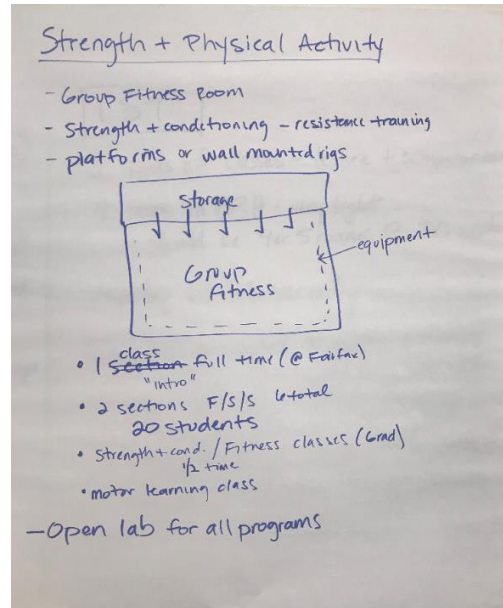 Strength + Physical Activity
- Group Fitness Room
- Strength + conditioning - resistance training
- platforms or wall mounted rigs
Storage
equipment
Group
Fitness
class
• 1 section full time (@ Fairfax)
"intro"
• 2 sections F/S/S 6 total
20 students
• Strength + cond. / Fitness classes (Grad)
1/2 time
• motor learning class
- Open lab for all programs